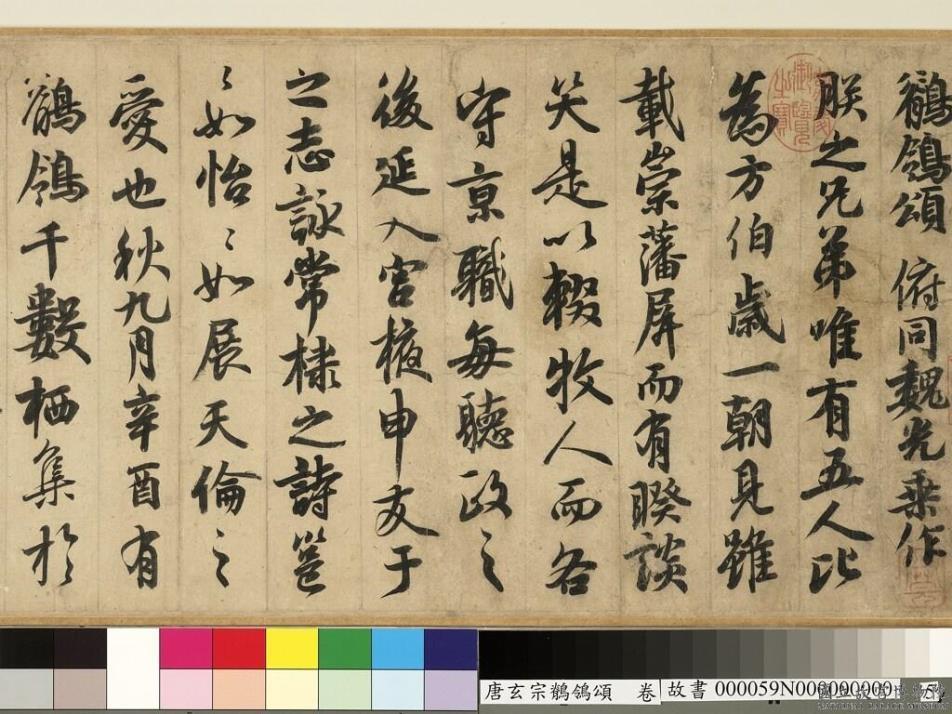 鶺鴒頌 俯同魏光乘作
朕之兄弟唯有五人比
為方伯歲一朝見雖
載崇藩屏而有睽談
笑是以輟牧人而各
守京職每聽政之
後延入宮掖申友于
之志詠常棣之詩邕
邕如怡怡如展天倫之
愛也秋九月辛酉有
鶺鴒千數栖集於
唐玄宗鶺鴒頌 卷 故書 000059N000000009
國立故宮博物院
NATIONAL PALACE MUSEUM